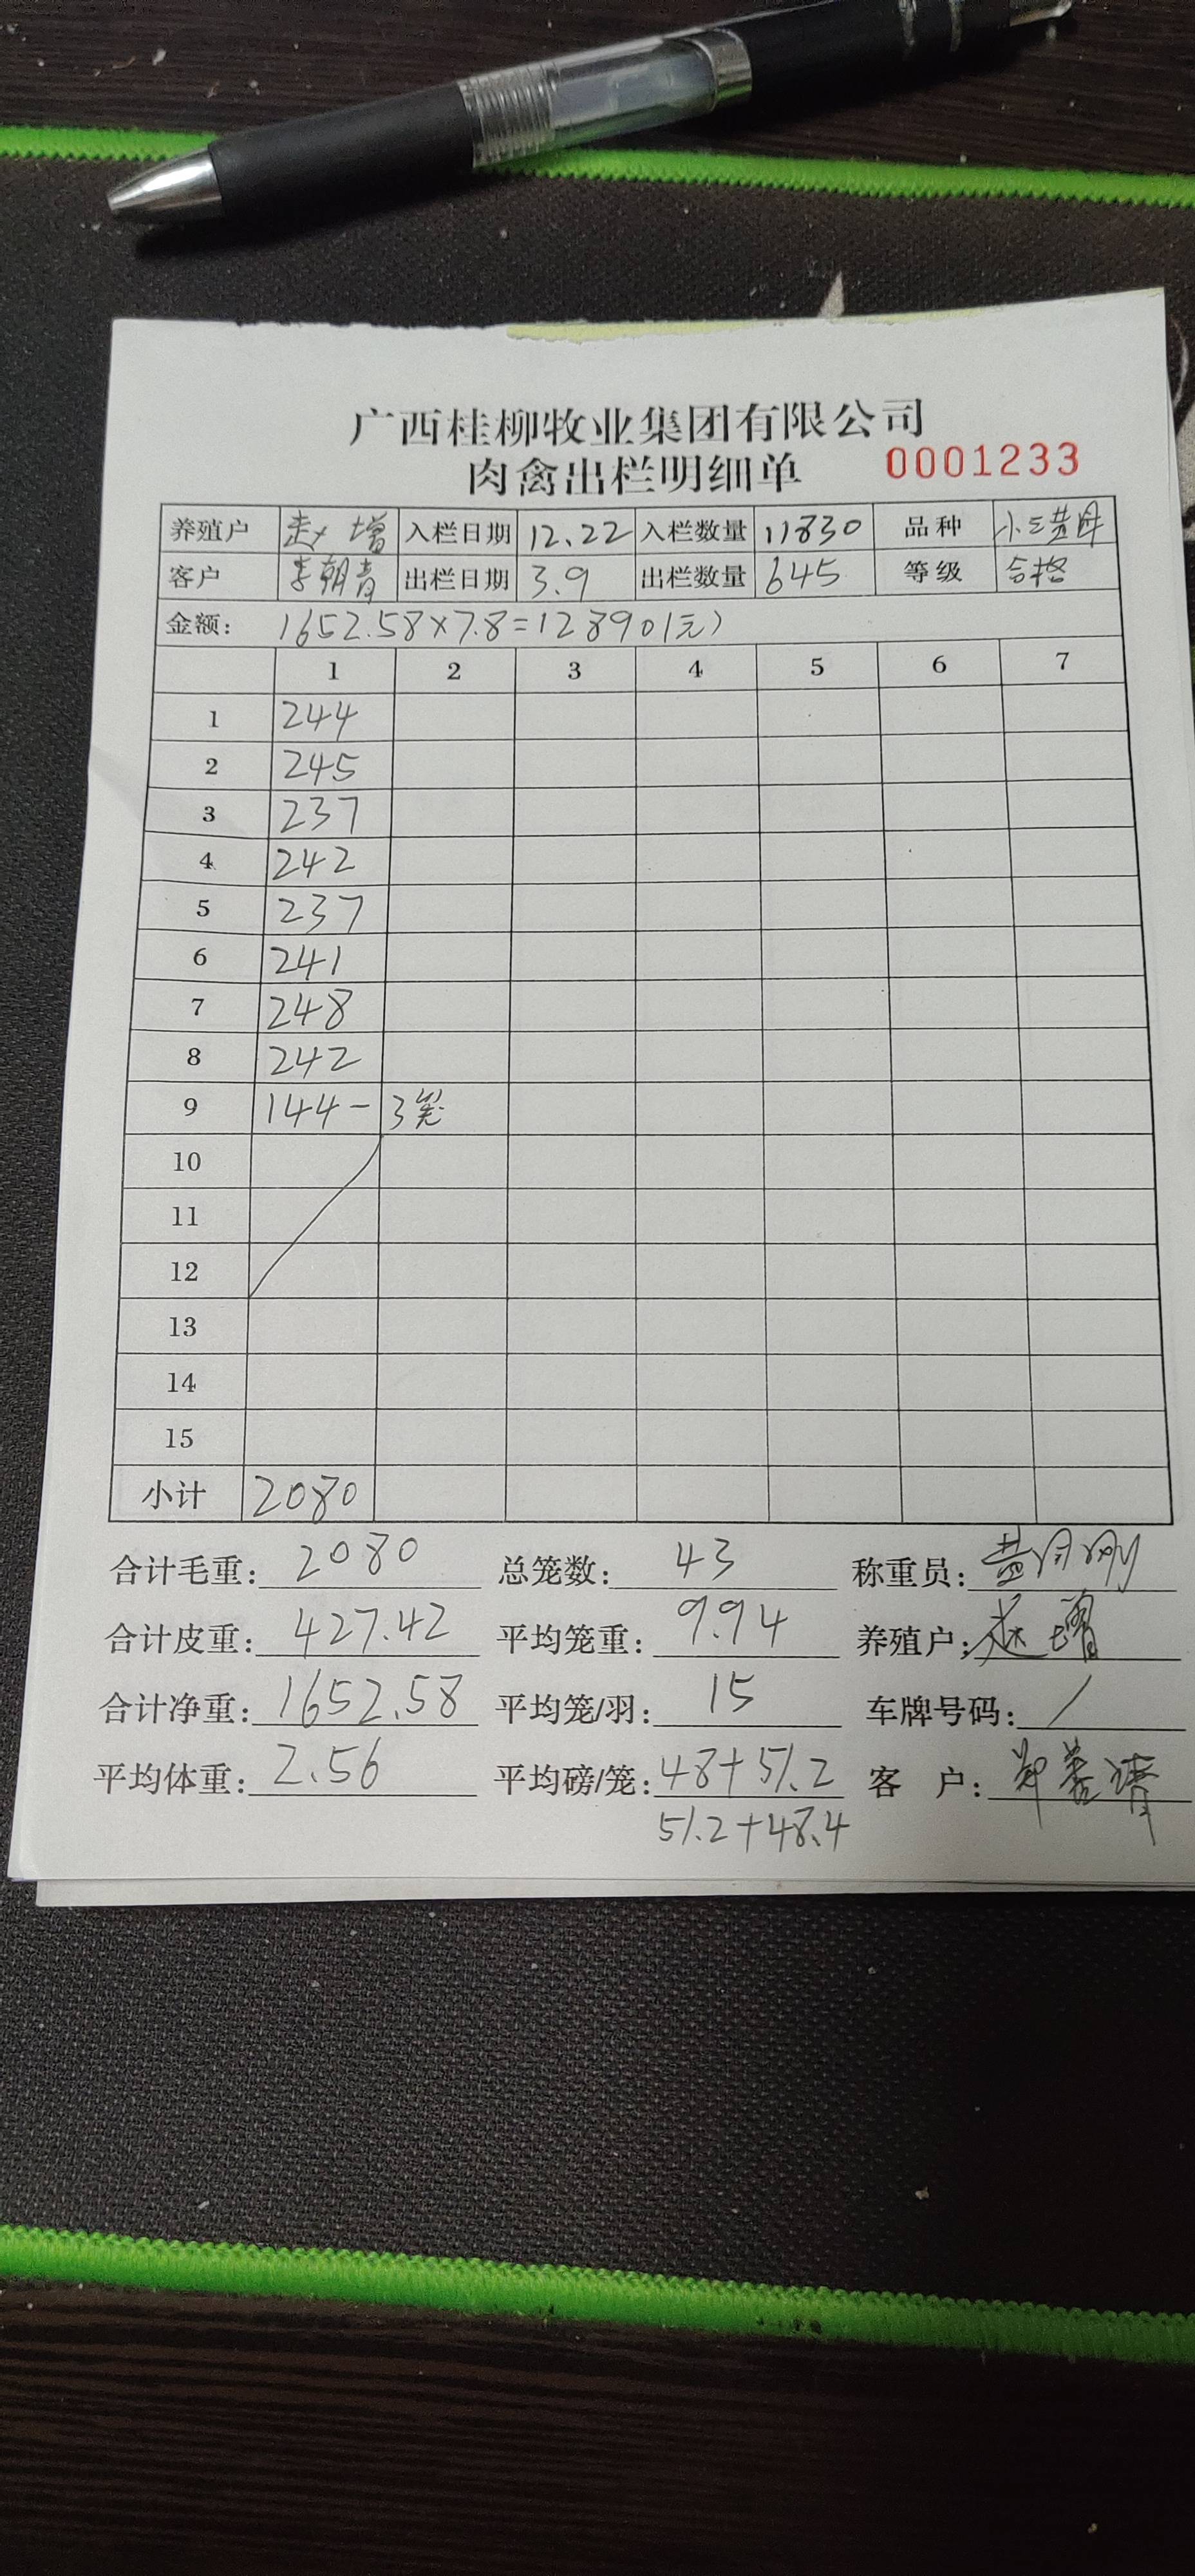 广西桂柳牧业集团有限公司
肉禽出栏明细单 0001233
养殖户 赵增 入栏日期 12.22 入栏数量 11830 品种 小三黄母
客户 李朝青 出栏日期 3.9 出栏数量 645 等级 合格
金额: 1652.58×7.8=12890(元)
1 2 3 4 5 6 7
1 244
2 245
3 237
4 242
5 237
6 241
7 248
8 242
9 144-3笼
10
11
12
13
14
15
小计 2080
合计毛重: 2080 总笼数: 43 称重员: 黄
合计皮重: 427.42 平均笼重: 9.94 养殖户: 赵增
合计净重: 1652.58 平均笼/羽: 15 车牌号码: /
平均体重: 2.56 平均磅/笼: 48+51.2 客 户:
51.2+48.4